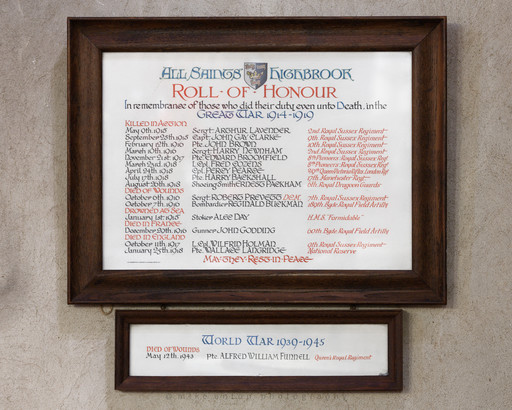 ALL SAINTS HIGHBROOK
ROLL · OF · HONOUR
In remembrance of those who did their duty even unto Death, in the
GREAT WAR 1914-1919
KILLED IN ACTION
May 9th. 1915 Sergt. ARTHUR LAVENDER 2nd Royal Sussex Regiment
September 25th 1915 Capt. JOHN GAY CLARKE 9th Royal Sussex Regiment
February 12th. 1916 Pte. JOHN BROWN Royal Sussex Regiment
March 10th. 1916 Sergt. HARRY NEWNHAM 2nd Royal Sussex Regiment
November 21st 1917 Pte. EDWARD BROOMFIELD
March 22nd. 1918 L.Cpl. FRED COZENS
April 24th. 1918 Cpl. PERCY PEARCE
July 17th. 1918 Pte. HARRY BACKSHALL Manchester Regt
August 26th. 1918 Shoeing Smith ERNEST PACKHAM 6th Royal Dragoon Guards
DIED OF WOUNDS
October 6th. 1917 Sergt. ROBERT PREVETT D.C.M. Royal Sussex Regiment
October 7th. 1918 Bombardier REGINALD BUCKMAN Royal Field Artillery
DROWNED AT SEA
January 1st. 1915 Stoker ALEC DAY H.M.S. "Formidable"
DIED IN FRANCE
December 20th. 1916 Gunner JOHN GODDING Royal Field Artillery
DIED IN ENGLAND
October 11th. 1917 L.Cpl. WILFRED HOLMAN 9th Royal Sussex Regiment
January 25th. 1918 Pte. WALLACE LANGRIDGE National Reserve
MAY THEY REST IN PEACE
WORLD WAR 1939-1945
DIED OF WOUNDS
May 12th. 1943 Pte ALFRED WILLIAM FUNNELL Queens Royal Regiment